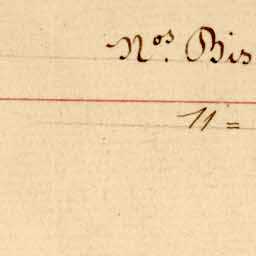 Nos. Bis
11 =